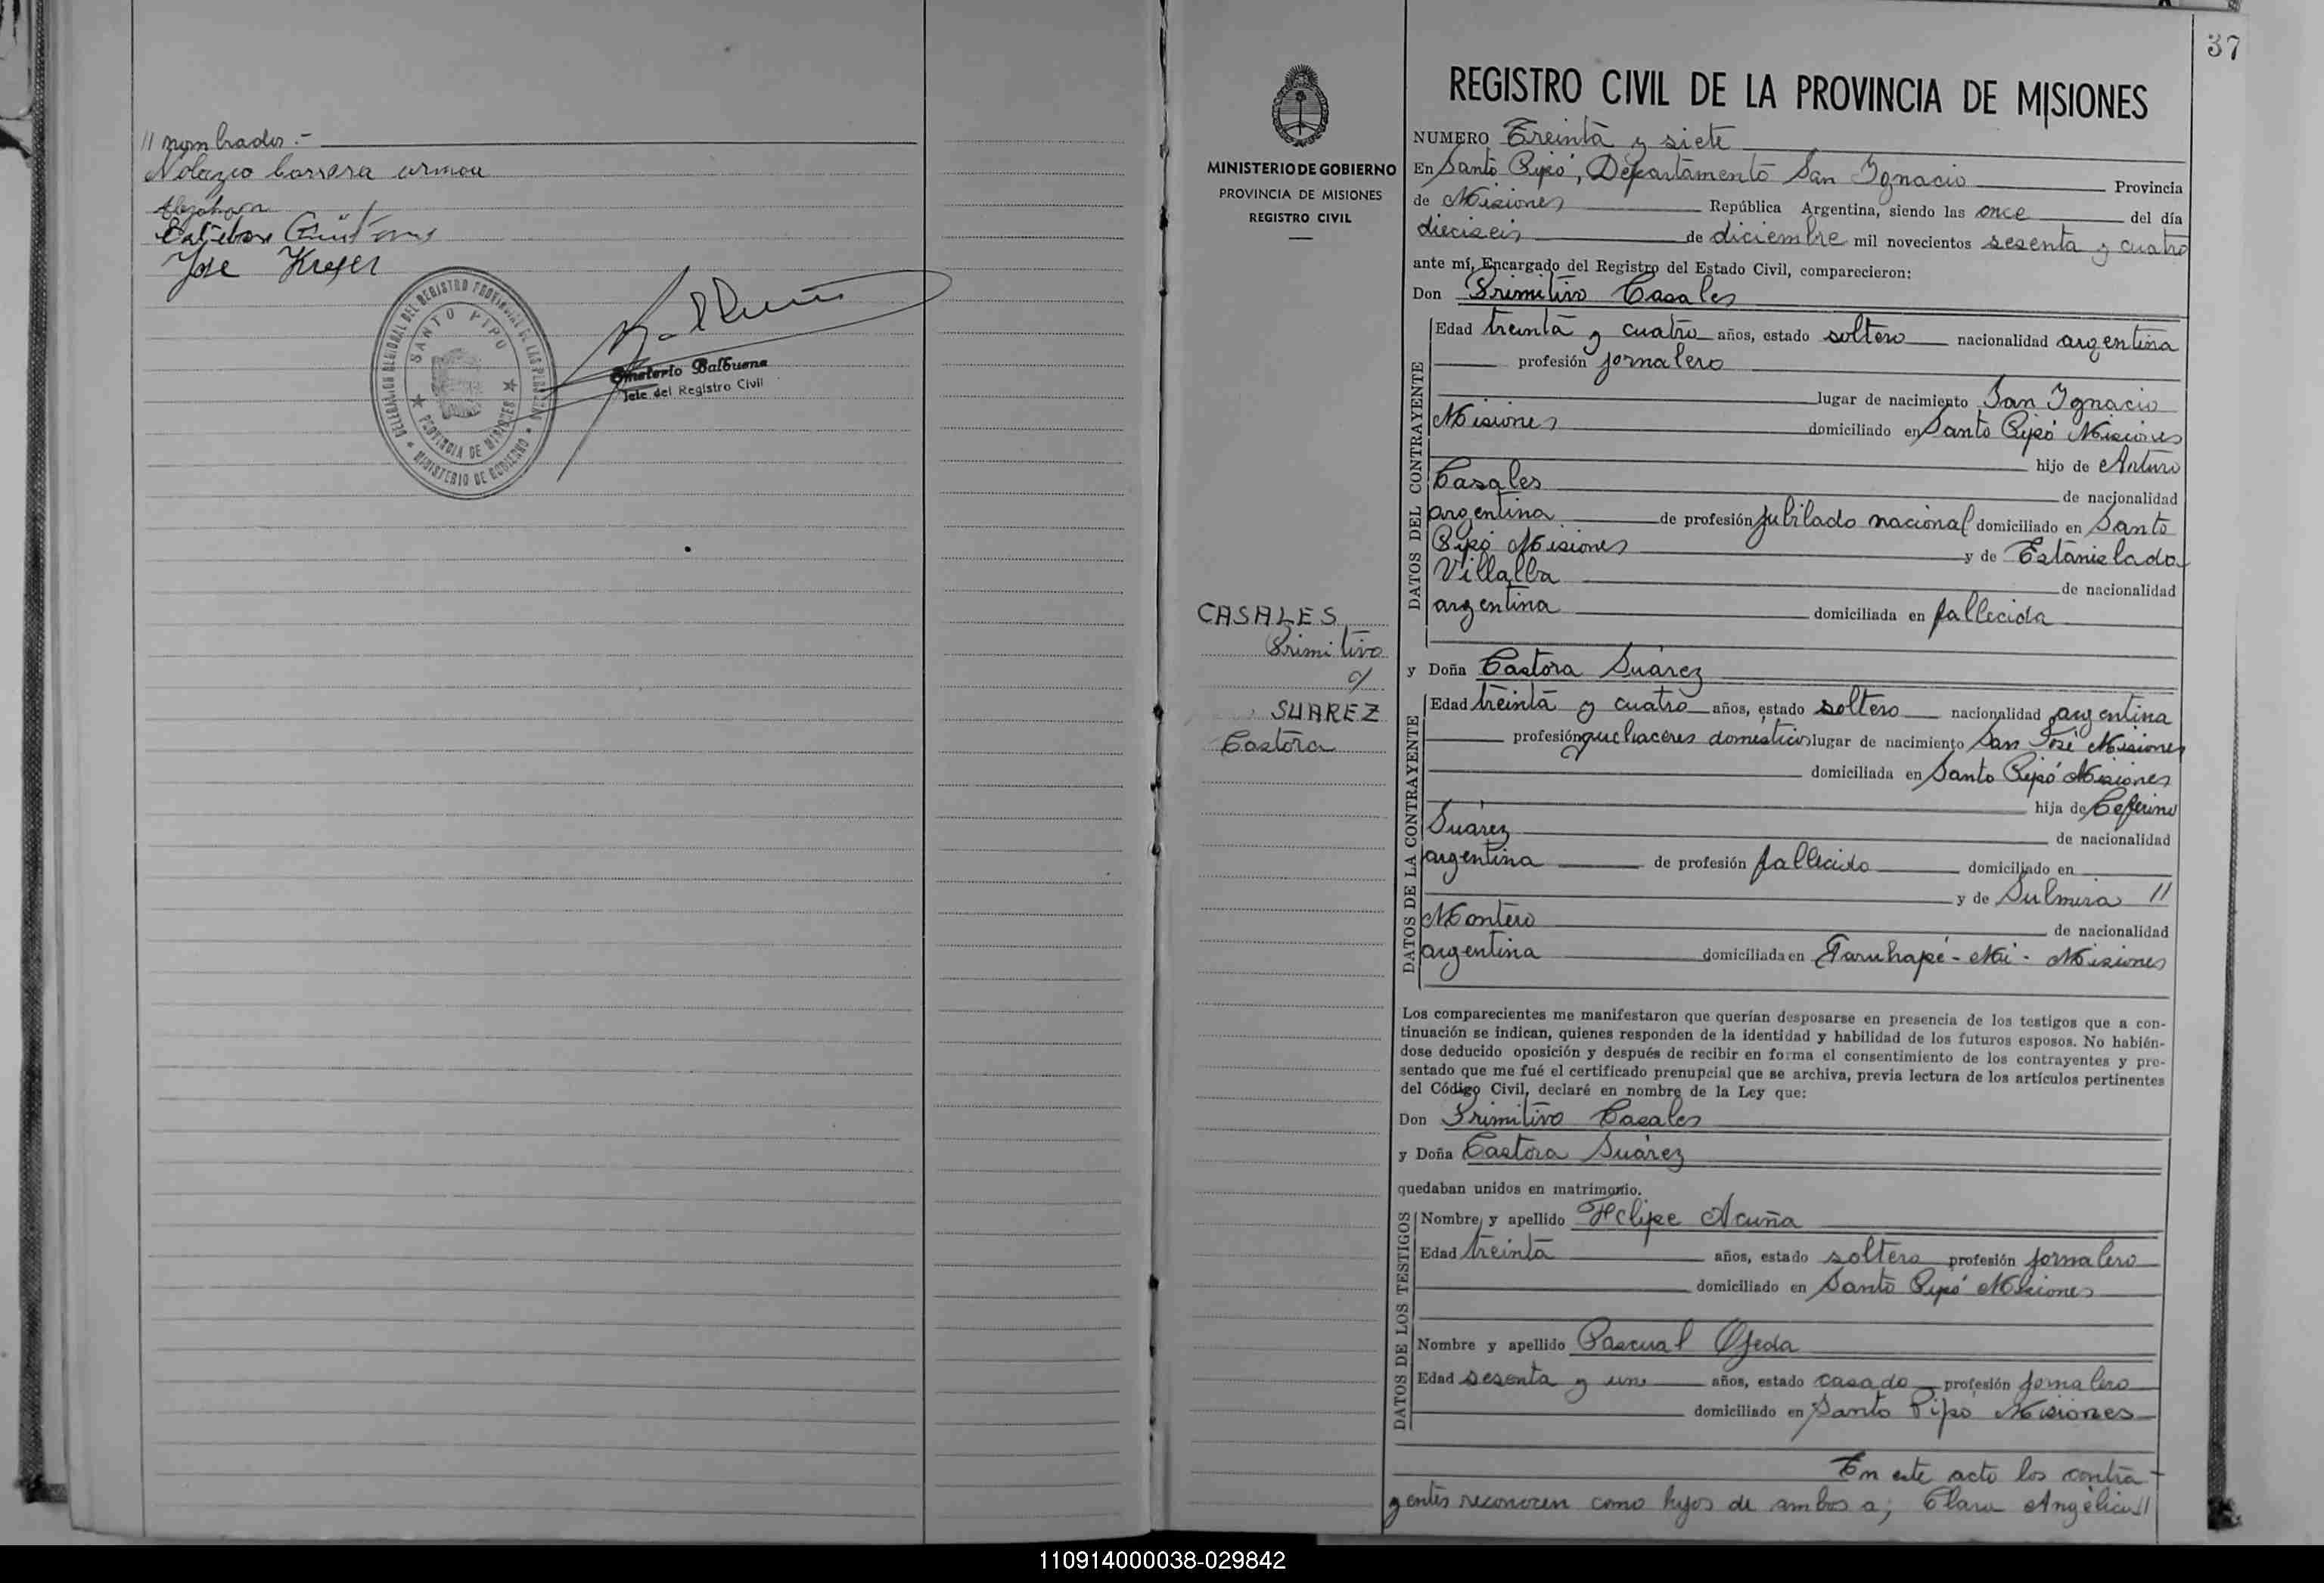 // nombrados.-
Nolazco barrera
José Kreyer
DELEGACION REGIONAL DEL REGISTRO PROVINCIAL DE LAS PERSONAS
SANTO PIPO
PROVINCIA DE MISIONES
MINISTERIO DE GOBIERNO
Emeterio Balbuena
Jefe del Registro Civil
37
MINISTERIO DE GOBIERNO
PROVINCIA DE MISIONES
REGISTRO CIVIL
CASALES
Primitivo
c/
SUAREZ
Castora
REGISTRO CIVIL DE LA PROVINCIA DE MISIONES
NUMERO Treinta y siete
En Santo Pipó, Departamento San Ignacio Provincia
de Misiones República Argentina, siendo las once del día
dieciseis de diciembre mil novecientos sesenta y cuatro
ante mí, Encargado del Registro del Estado Civil, comparecieron:
Don Primitivo Casales
DATOS DEL CONTRAYENTE
Edad treinta y cuatro años, estado soltero nacionalidad argentina
profesión jornalero
lugar de nacimiento San Ignacio
Misiones domiciliado en Santo Pipó Misiones
hijo de Arturo
Casales de nacionalidad
argentina de profesión jubilado nacional domiciliado en Santo
Pipó Misiones y de Estanislada
Villalba de nacionalidad
argentina domiciliada en fallecida
y Doña Castora Suárez
DATOS DE LA CONTRAYENTE
Edad treinta y cuatro años, estado soltero nacionalidad argentina
profesión quehaceres domésticos lugar de nacimiento San José Misiones
domiciliada en Santo Pipó Misiones
hija de Ceferino
Suárez de nacionalidad
argentina de profesión fallecido domiciliado en
y de Sulmira //
Montero de nacionalidad
argentina domiciliada en Garuhapé-Mi- Misiones
Los comparecientes me manifestaron que querían desposarse en presencia de los testigos que a con-
tinuación se indican, quienes responden de la identidad y habilidad de los futuros esposos. No habién-
dose deducido oposición y después de recibir en forma el consentimiento de los contrayentes y pre-
sentado que me fué el certificado prenupcial que se archiva, previa lectura de los artículos pertinentes
del Código Civil, declaré en nombre de la Ley que:
Don Primitivo Casales
y Doña Castora Suárez
quedaban unidos en matrimonio.
DATOS DE LOS TESTIGOS
Nombre y apellido Felipe Acuña
Edad treinta años, estado soltero profesión jornalero
domiciliado en Santo Pipó Misiones
Nombre y apellido Pascual Ojeda
Edad sesenta y un años, estado casado profesión jornalero
domiciliado en Santo Pipó Misiones
En este acto los contra-
yentes reconocen como hijos de ambos a; Clara Angélica //
110914000038-029842